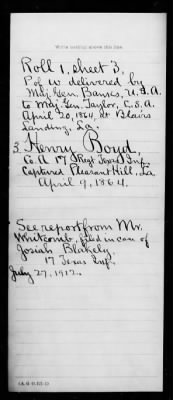 Write nothing above this line.
Roll 1, sheet 3,
P of W delivered by
Maj. Gen. Banks, U.S.A.
to Maj. Gen. Taylor, C.S.A.
April 20, 1864, at Blairs
Landing, La.
3. Henry Boyd,
Co. A 17 Regt Texas Inf.
Captured Pleasant Hill, La
April 9, 1864.
See report from Mr.
Whitcomb, filed in case of
Josiah Blakely,
17 Texas Inf.
July 27, 1912.